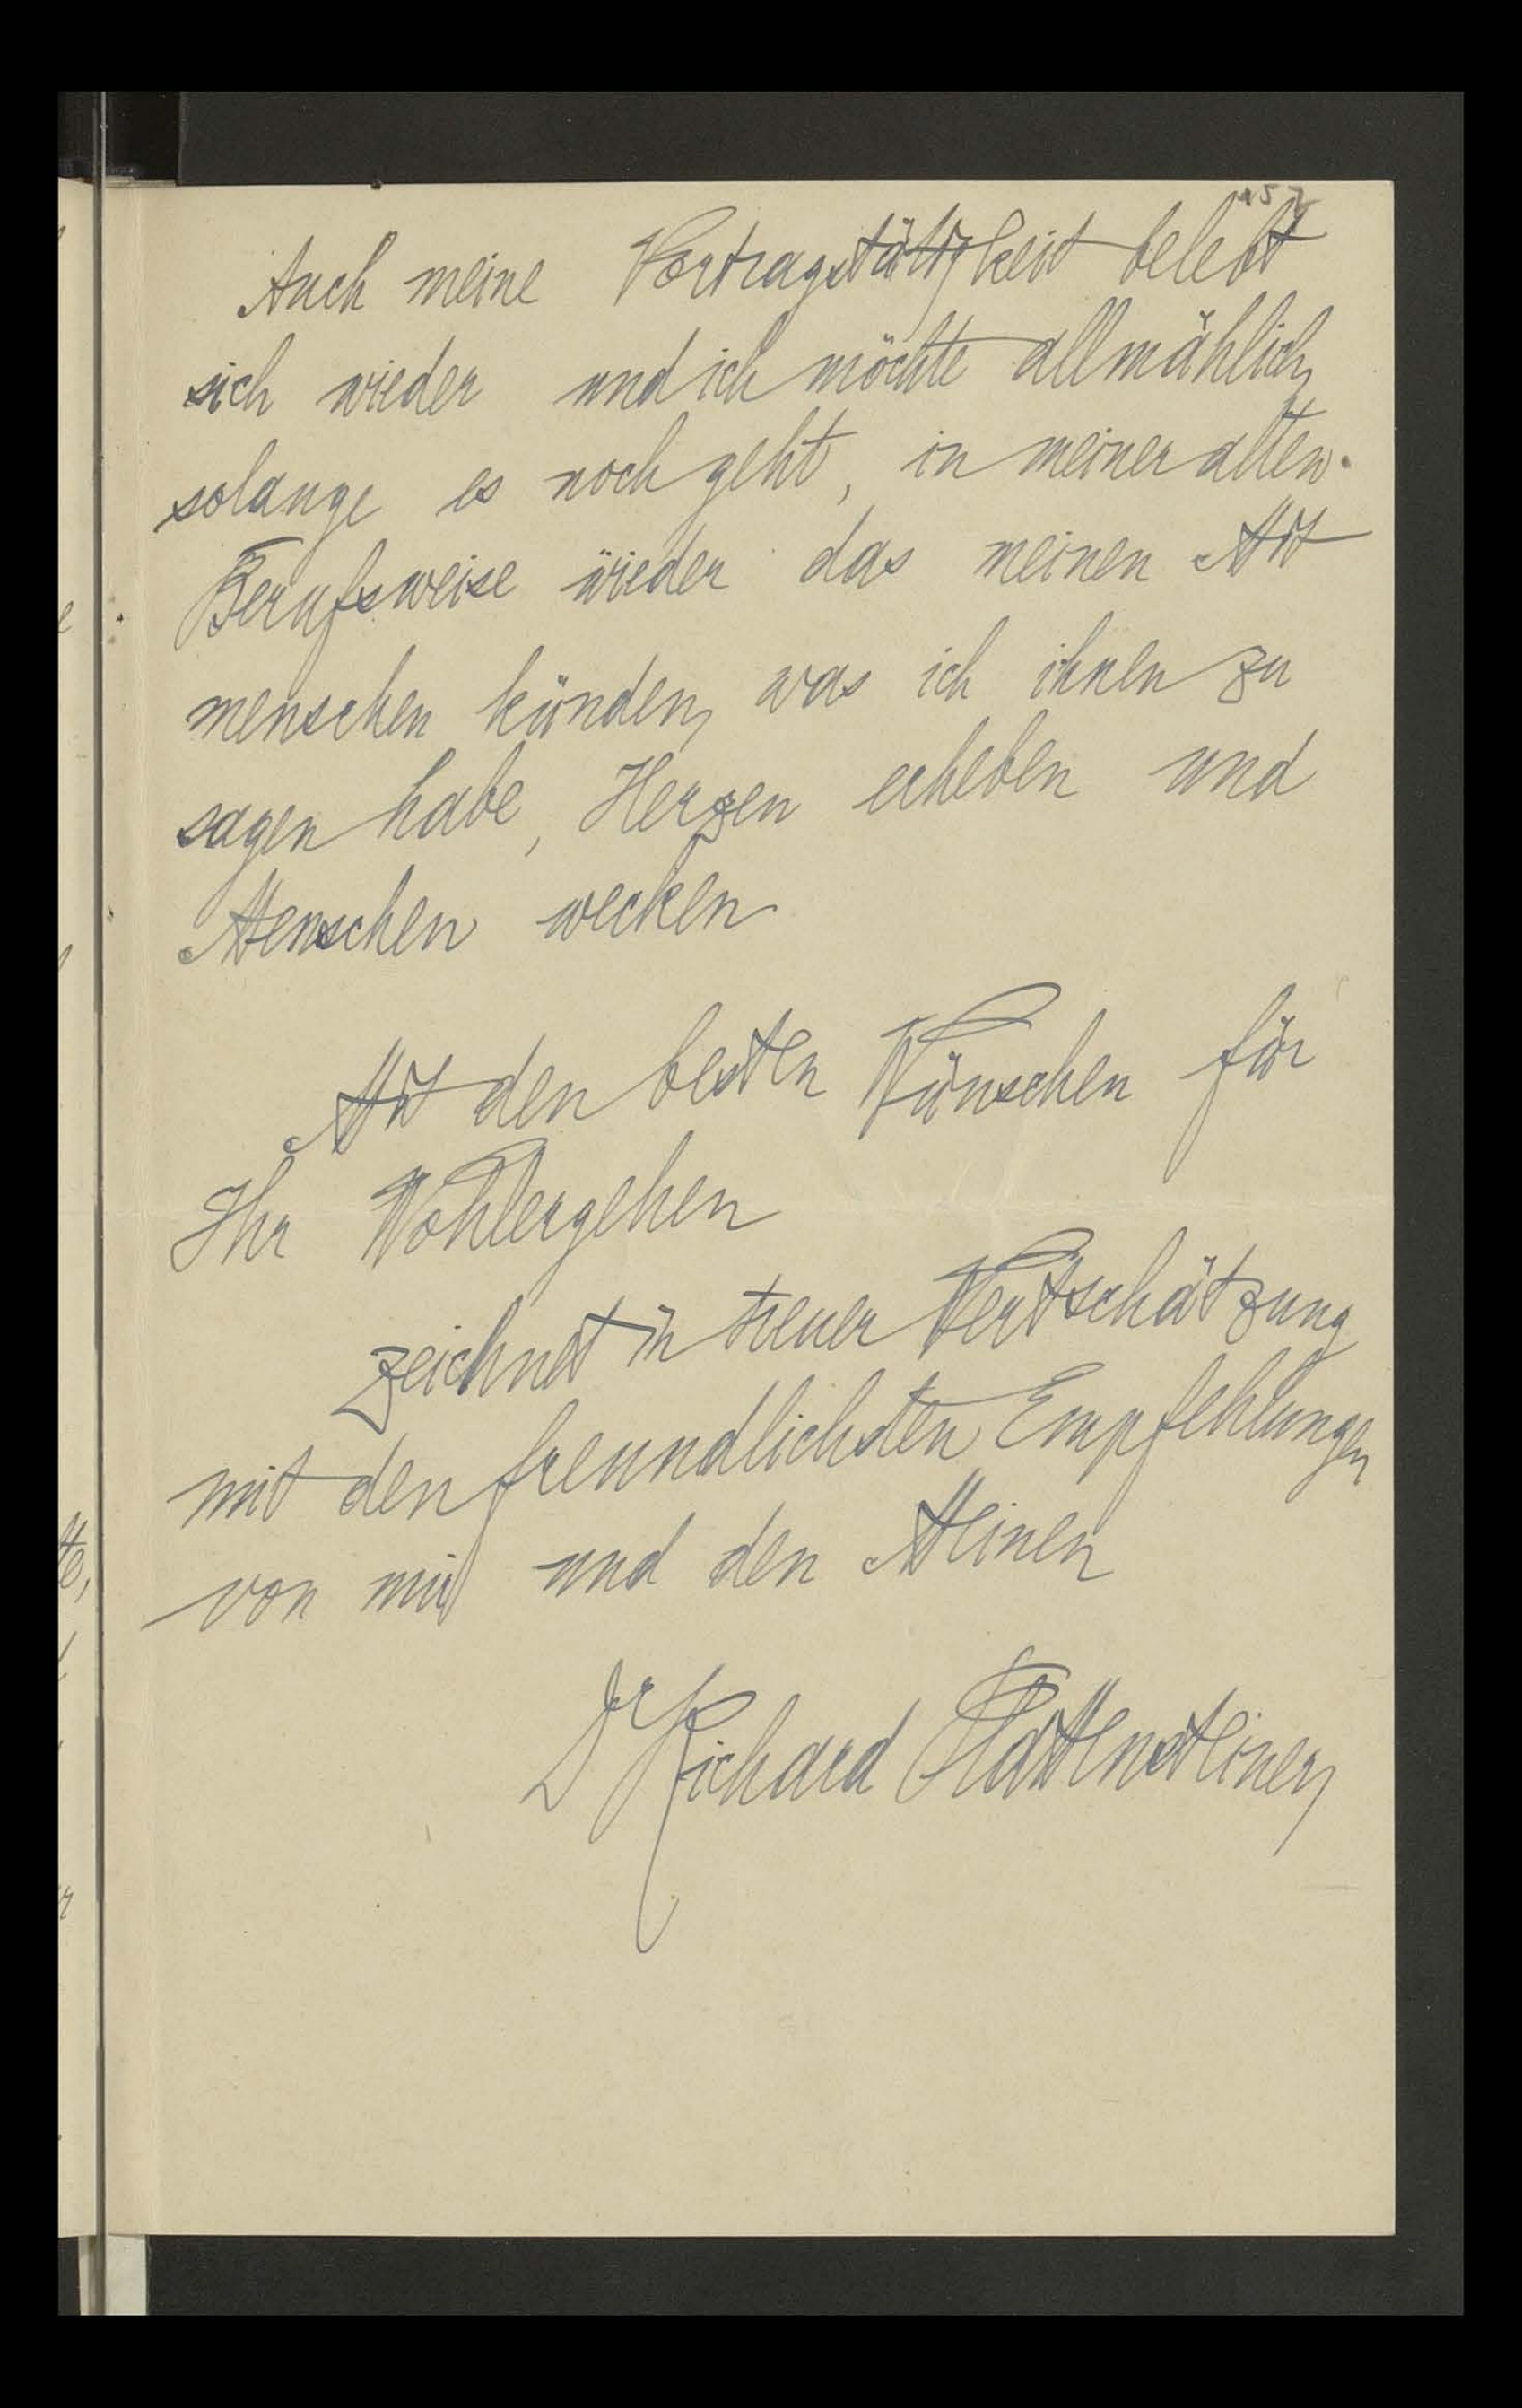 157
Auch meine Vortragstätigkeit belebt
sich wieder und ich möchte allmählich,
solange es noch geht, in meiner alten
Berufsweise wieder das meinen Mit
menschen künden, was ich ihnen zu
sagen habe, Herzen erheben und
Menschen wecken
Mit den besten Wünschen für
Ihr Wohlergehen
zeichnet in treuer Wertschätzung
mit den freundlichsten Empfehlungen
von mir und den Meinen
Dr Richard Plattensteiner